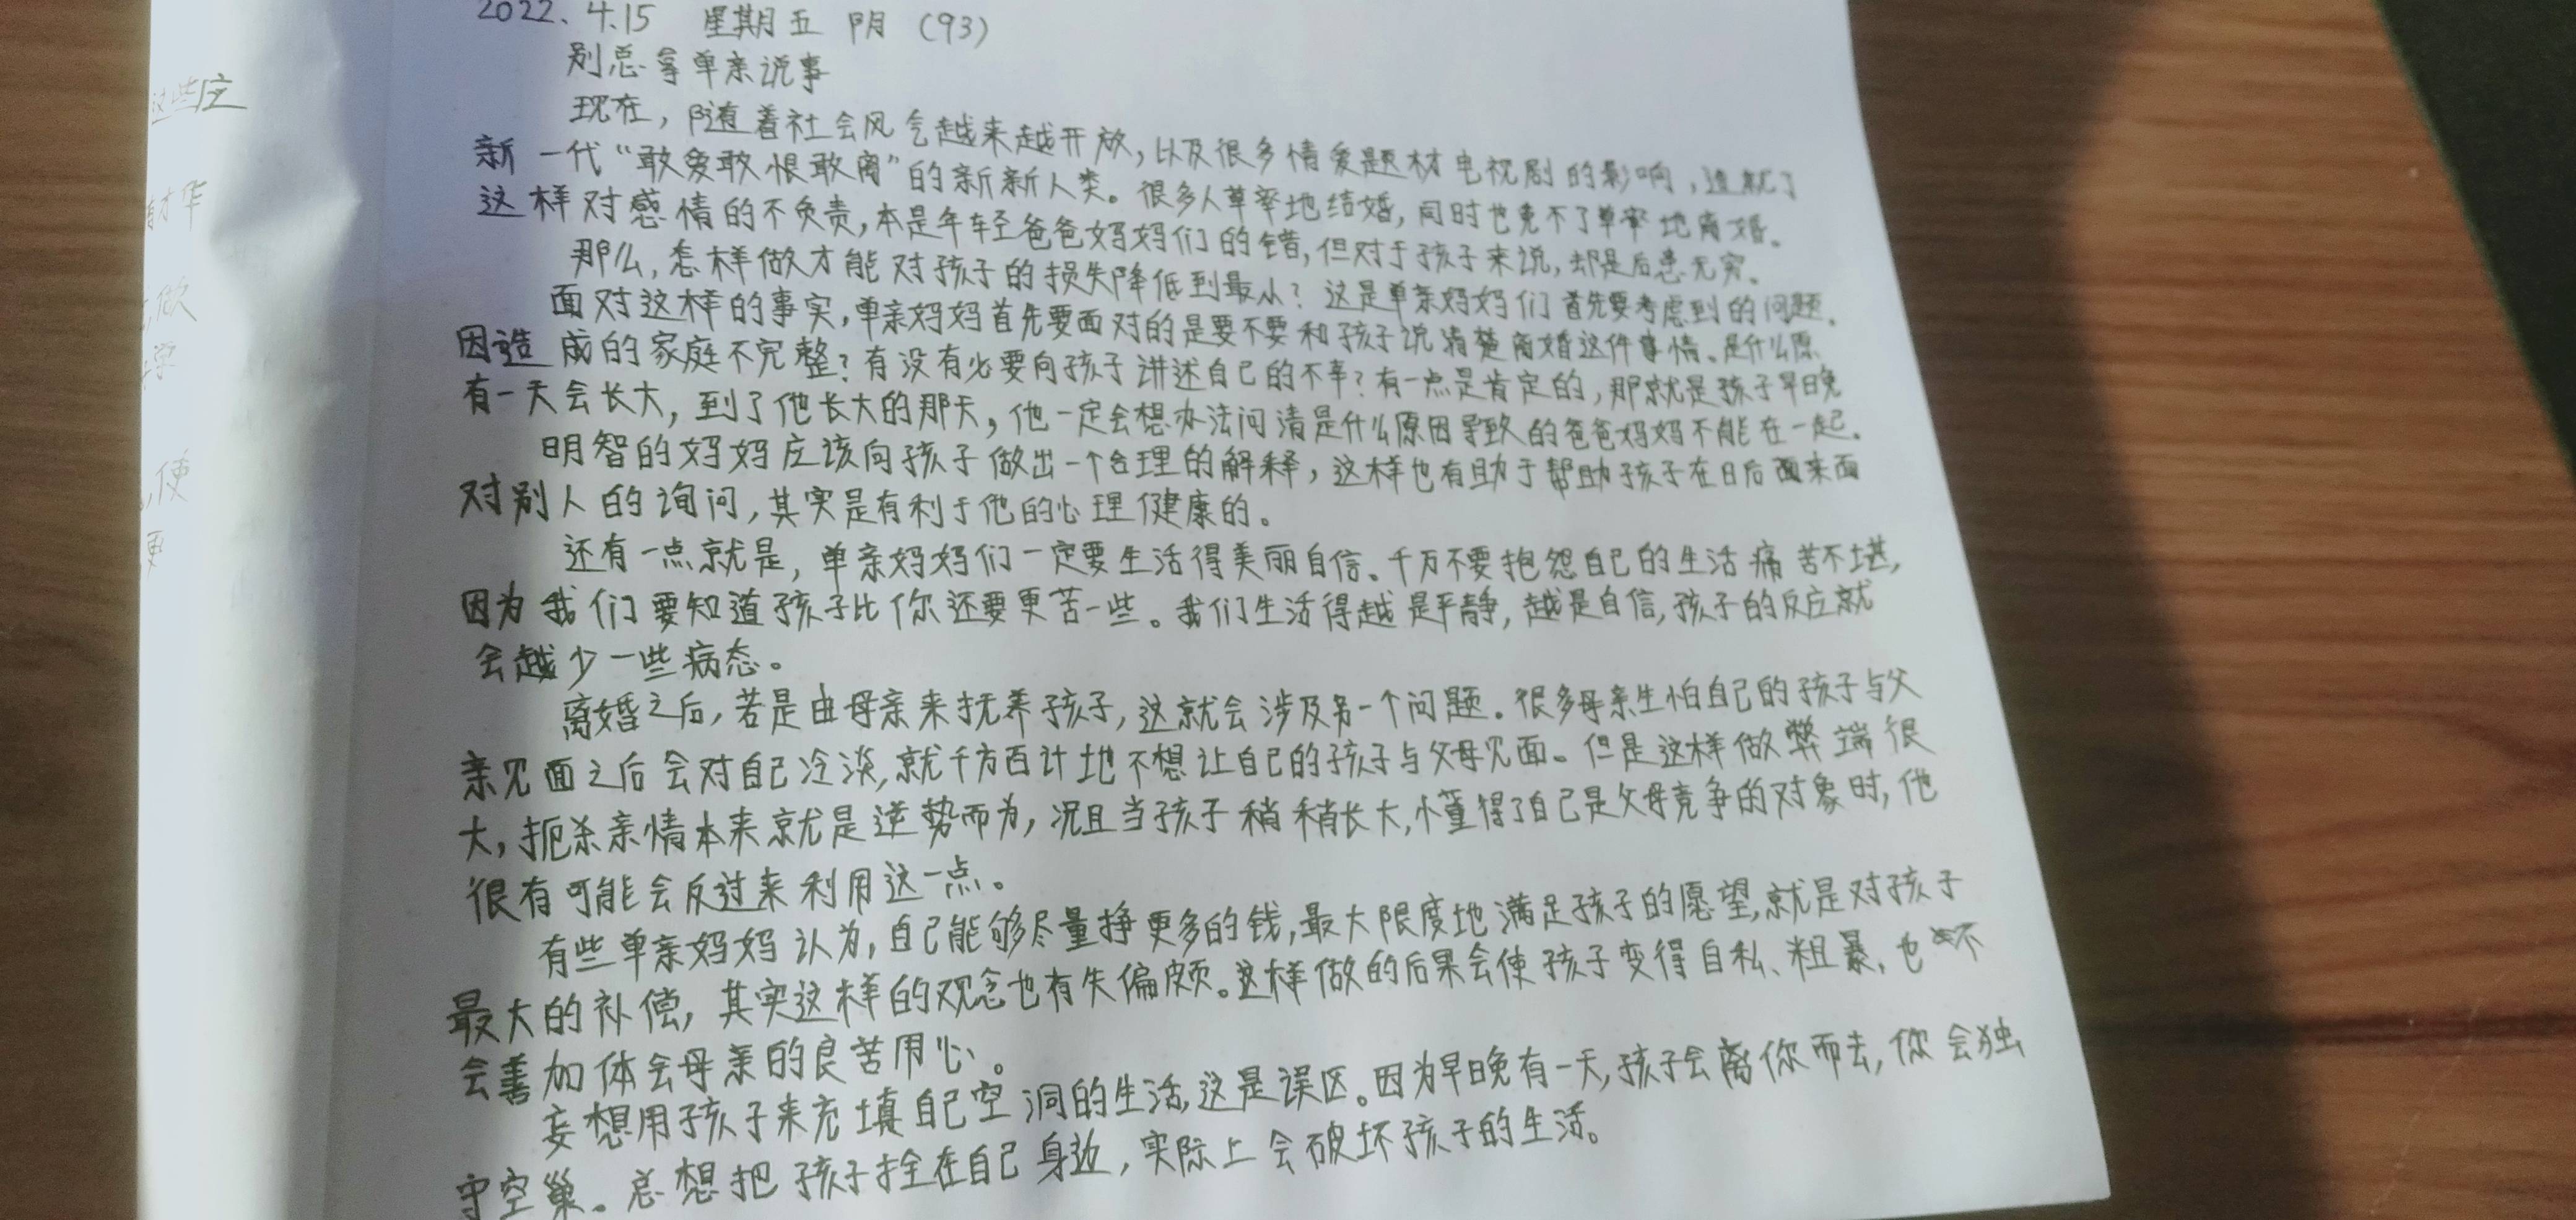 2022、4.15 星期五 阴 (93)
别总拿单亲说事
现在，随着社会风气越来越开放，以及很多情爱题材电视剧的影响，造就了
新一代“敢爱敢恨敢离”的新新人类。很多人草率地结婚，同时也免不了草率地离婚。
这样对感情的不负责，本是年轻爸爸妈妈们的错，但对于孩子来说，却是后患无穷。
那么，怎样做才能对孩子的损失降低到最小？这是单亲妈妈们首先要考虑到的问题。
面对这样的事实，单亲妈妈首先要面对的是要不要和孩子说清楚离婚这件事情。是什么原
因造成的家庭不完整？有没有必要向孩子讲述自己的不幸？有一点是肯定的，那就是孩子早晚
有一天会长大，到了他长大的那天，他一定会想办法问清是什么原因导致的爸爸妈妈不能在一起。
明智的妈妈应该向孩子做出一个合理的解释，这样也有助于帮助孩子在日后面来面
对别人的询问，其实是有利于他的心理健康的。
还有一点就是，单亲妈妈们一定要生活得美丽自信。千万不要抱怨自己的生活痛苦不堪，
因为我们要知道孩子比你还要更苦一些。我们生活得越是平静，越是自信，孩子的反应就
会越少一些病态。
离婚之后，若是由母亲来抚养孩子，这就会涉及另一个问题。很多母亲生怕自己的孩子与父
亲见面之后会对自己冷淡，就千方百计地不想让自己的孩子与父母见面。但是这样做弊端很
大，扼杀亲情本来就是逆势而为，况且当孩子稍稍长大，懂得了自己是父母竞争的对象时，他
很有可能会反过来利用这一点。
有些单亲妈妈认为，自己能够尽量挣更多的钱，最大限度地满足孩子的愿望，就是对孩子
最大的补偿，其实这样的观念也有失偏颇。这样做的后果会使孩子变得自私、粗暴，也不
会善加体会母亲的良苦用心。
妄想用孩子来充填自己空洞的生活，这是误区。因为早晚有一天，孩子会离你而去，你会独
守空巢。总想把孩子拴在自己身边，实际上会破坏孩子的生活。
这些应
做
学
使
更